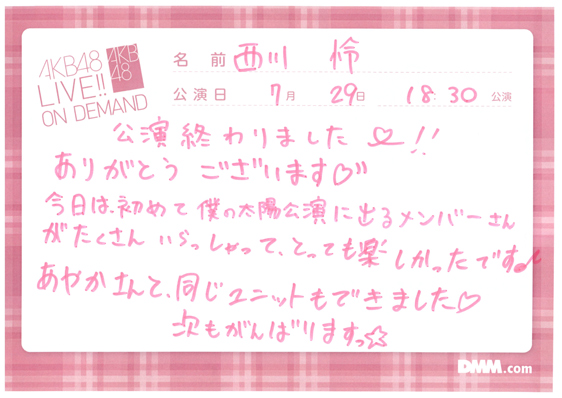 AKB48
LIVE!!
ON DEMAND
AKB
48
名前 西川 怜
公演日 7月 29日 18:30 公演
公演終わりました♡!!
ありがとうございます♡"
今日は、初めて僕の太陽公演に出るメンバーさん
がたくさんいらっしゃって、とっても楽しかったです♪
あやかさんと、同じユニットもできました♡
次もがんばりますっ☆
DMM.com